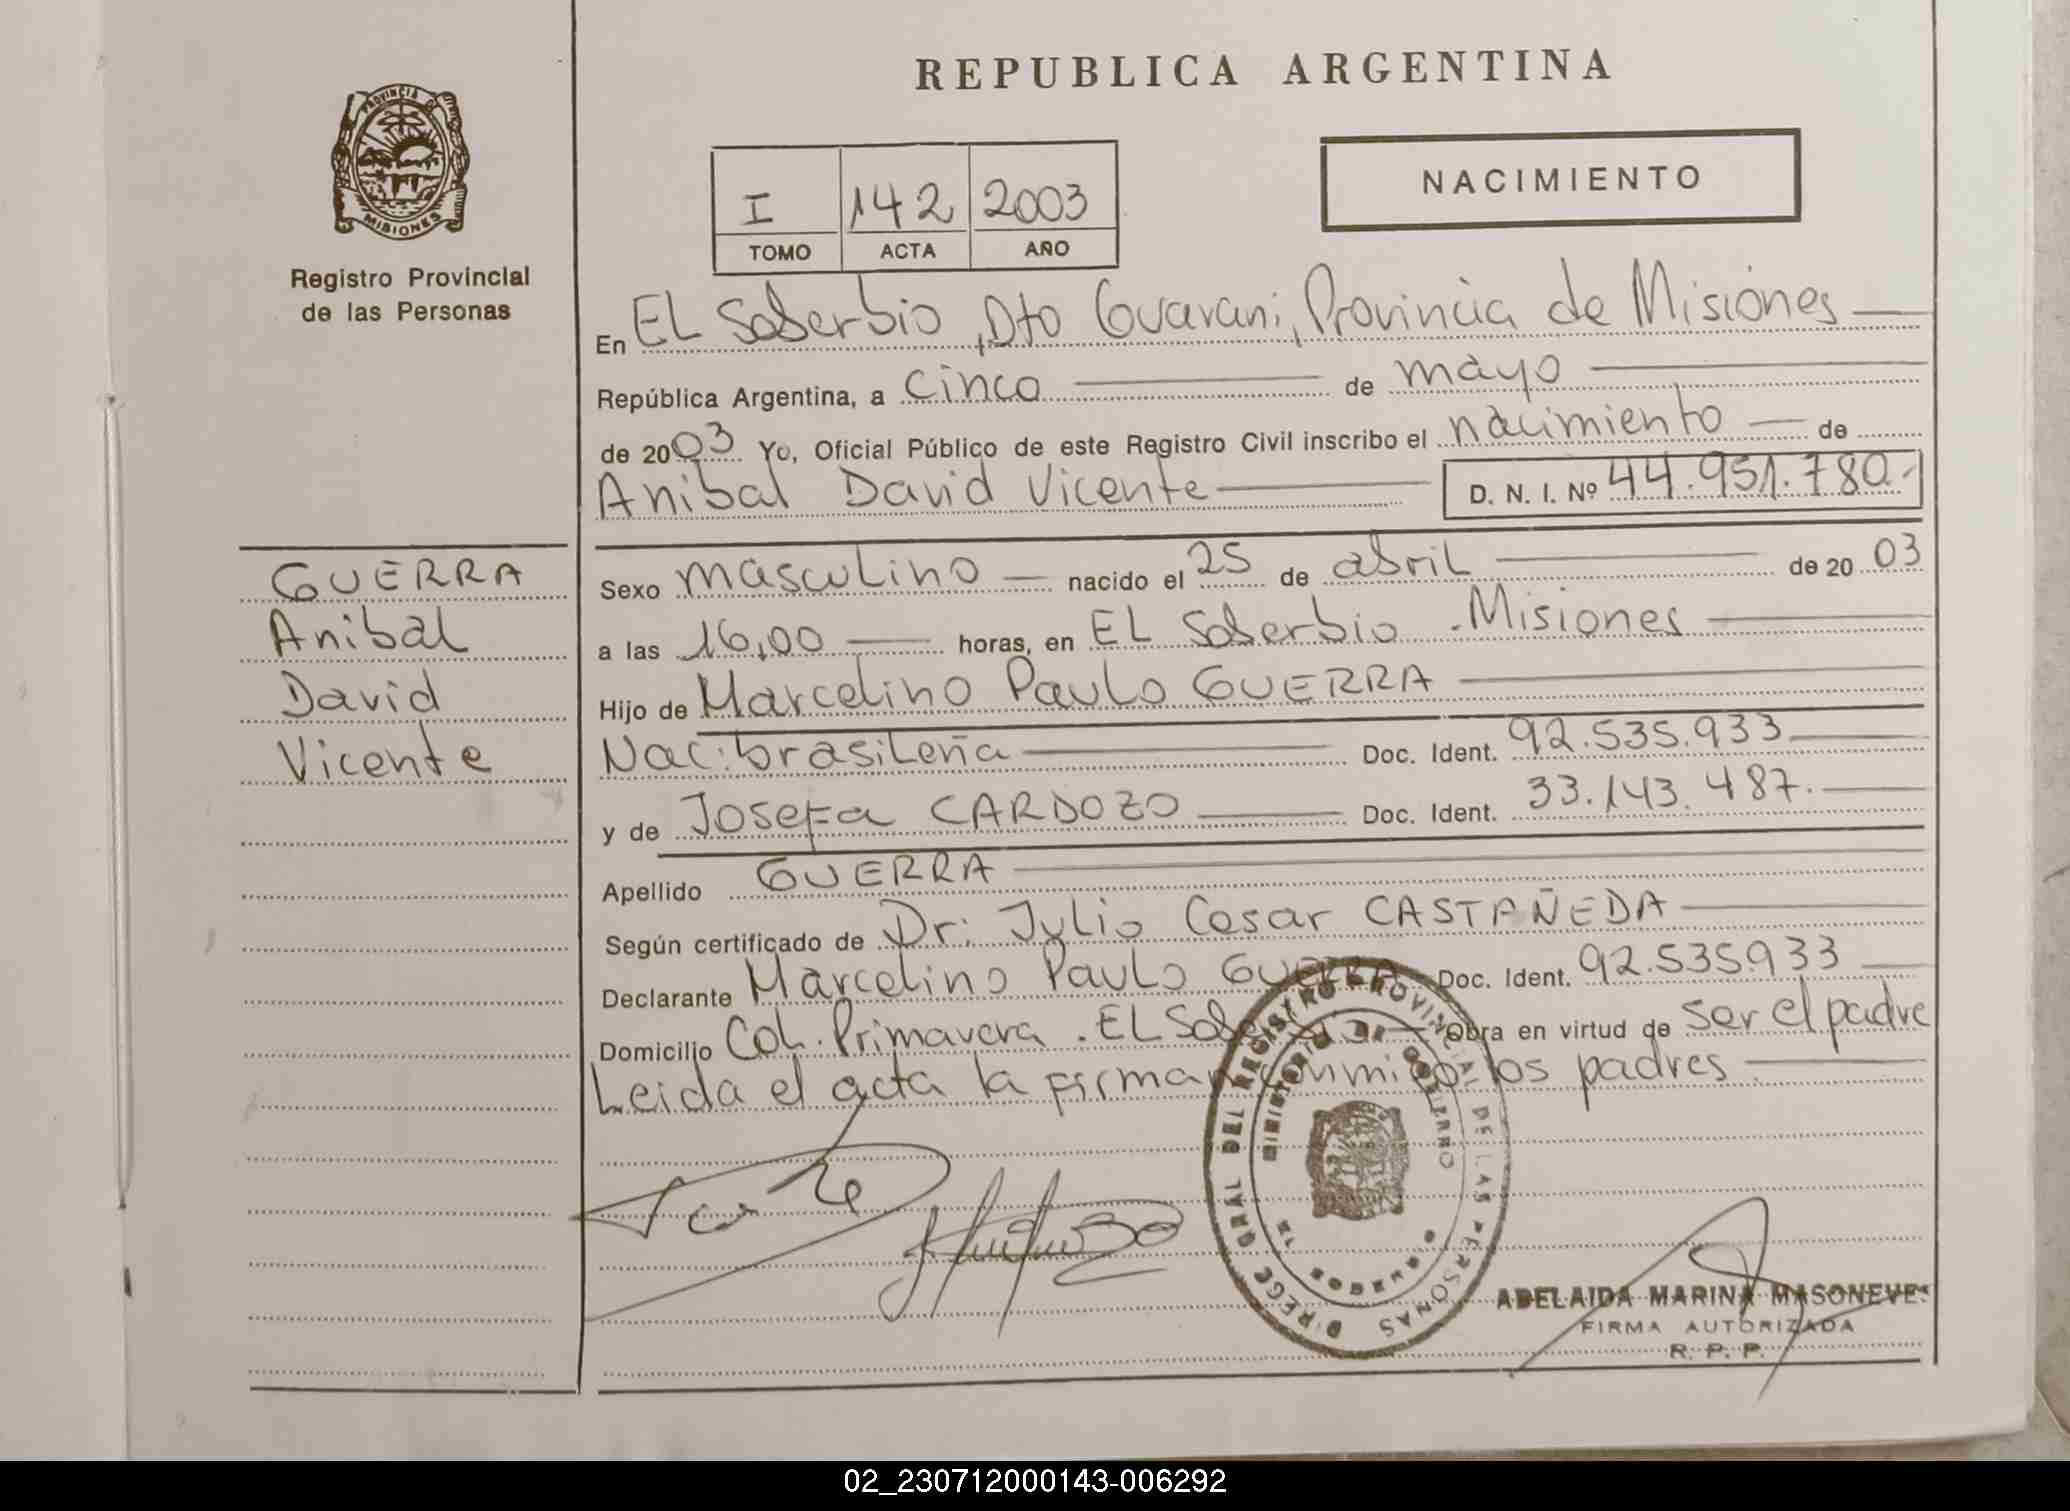 REPUBLICA ARGENTINA
PROVINCIA DE
MISIONES
Registro Provincial
de las Personas
I 142 2003
TOMO ACTA AÑO
NACIMIENTO
En EL Soberbio, Dto Guarani, Provincia de Misiones
República Argentina, a cinco de mayo
de 2003 Yo, Oficial Público de este Registro Civil inscribo el nacimiento de
Anibal David Vicente D. N. I. Nº 44.951.780.-
GUERRA
Anibal
David
Vicente
Sexo masculino nacido el 25 de abril de 2003
a las 16,00 horas, en EL Soberbio - Misiones
Hijo de Marcelino Paulo GUERRA
Nac: brasileña Doc. Ident. 92.535.933
y de Josefa CARDOZO Doc. Ident. 33.143.487.
Apellido GUERRA
Según certificado de Dr: Julio Cesar CASTAÑEDA
Declarante Marcelino Paulo GUERRA Doc. Ident. 92.535.933
Domicilio Col. Primavera. EL Soberbio Obra en virtud de ser el padre
Leida el acta la firman conmigo los padres
DIRECC GRAL DEL REGISTRO PROVINCIAL DE LAS PERSONAS
MINISTERIO DE GOBIERNO
ADELAIDA MARINA MASONEVES
FIRMA AUTORIZADA
R. P. P.
02_230712000143-006292